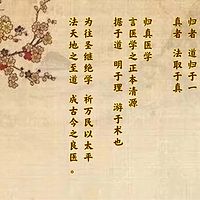 归者　道归于一
真者　法取于真
归真医学
言医学之正本清源
据于道　明于理　游于术也
为往圣继绝学　祈万民以太平
法天地之至道　成古今之良医。